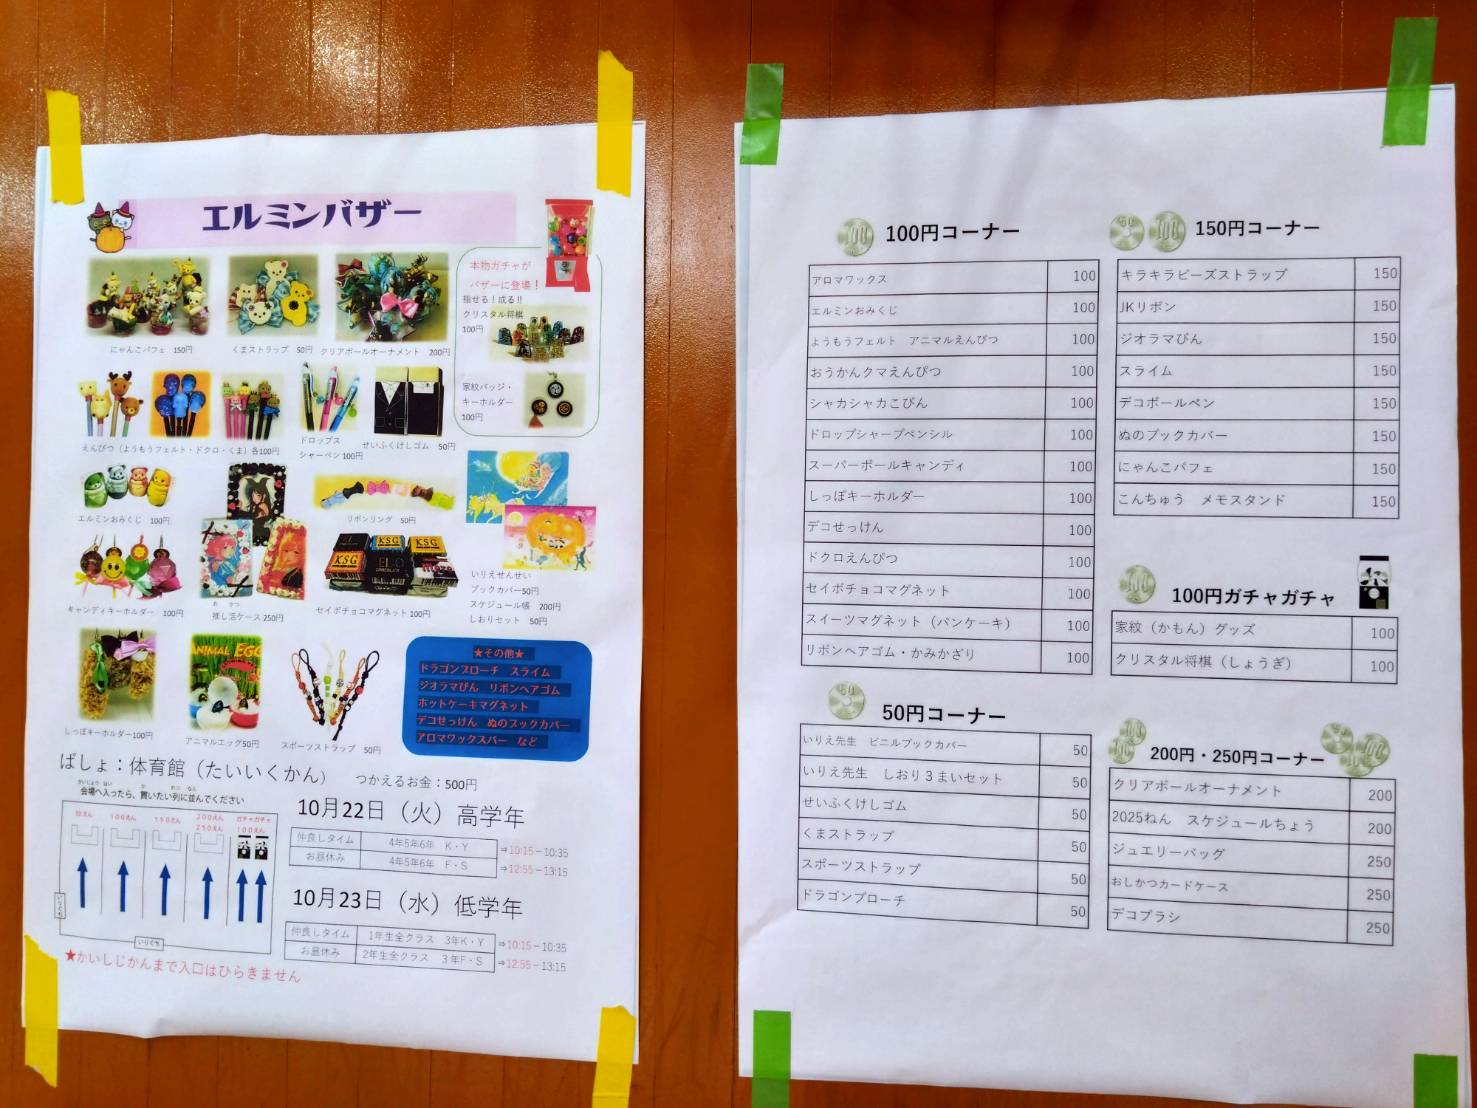 エルミンバザー
本物ガチャが
バザーに登場！
指せる！成る!!
クリスタル将棋
100円
家紋バッジ・
キーホルダー
100円
にゃんこパフェ 150円
くまストラップ 50円
クリアボールオーナメント 200円
えんぴつ（ようもうフェルト・ドクロ・くま）各100円
ドロップス
シャーペン100円
せいふくけしゴム 50円
エルミンおみくじ 100円
リボンリング 50円
キャンディキーホルダー 100円
お かつ
推し活ケース250円
KSG
KSG
セイボチョコマグネット100円
いりえせんせい
ブックカバー50円
スケジュール帳 200円
しおりセット 50円
ANIMAL EGG
しっぽキーホルダー100円
アニマルエッグ50円
スポーツストラップ 50円
★その他★
ドラゴンブローチ スライム
ジオラマびん リボンヘアゴム
ホットケーキマグネット
デコせっけん ぬのブックカバー
アロマワックスバー など
ばしょ：体育館（たいいくかん） つかえるお金：500円
かいじょう はい か れつ なら
会場へ入ったら、買いたい列に並んでください
50えん
100えん
150えん
200えん
250えん
ガチャガチャ
100えん
いりぐち
いりぐち
★かいしじかんまで入口はひらきません
10月22日（火）高学年
仲良しタイム 4年5年6年 K・Y ⇒10:15－10:35
お昼休み 4年5年6年 F・S ⇒12:55－13:15
10月23日（水）低学年
仲良しタイム 1年生全クラス 3年K・Y ⇒10:15－10:35
お昼休み 2年生全クラス 3年F・S ⇒12:55－13:15
100円コーナー
アロマワックス 100
エルミンおみくじ 100
ようもうフェルト アニマルえんぴつ 100
おうかんクマえんぴつ 100
シャカシャカこびん 100
ドロップシャープペンシル 100
スーパーボールキャンディ 100
しっぽキーホルダー 100
デコせっけん 100
ドクロえんぴつ 100
セイボチョコマグネット 100
スイーツマグネット（パンケーキ） 100
リボンヘアゴム・かみかざり 100
50円コーナー
いりえ先生 ビニルブックカバー 50
いりえ先生 しおり３まいセット 50
せいふくけしゴム 50
くまストラップ 50
スポーツストラップ 50
ドラゴンブローチ 50
150円コーナー
キラキラビーズストラップ 150
JKリボン 150
ジオラマびん 150
スライム 150
デコボールペン 150
ぬのブックカバー 150
にゃんこパフェ 150
こんちゅう メモスタンド 150
100円ガチャガチャ
家紋（かもん）グッズ 100
クリスタル将棋（しょうぎ） 100
200円・250円コーナー
クリアボールオーナメント 200
2025ねん スケジュールちょう 200
ジュエリーバッグ 250
おしかつカードケース 250
デコブラシ 250